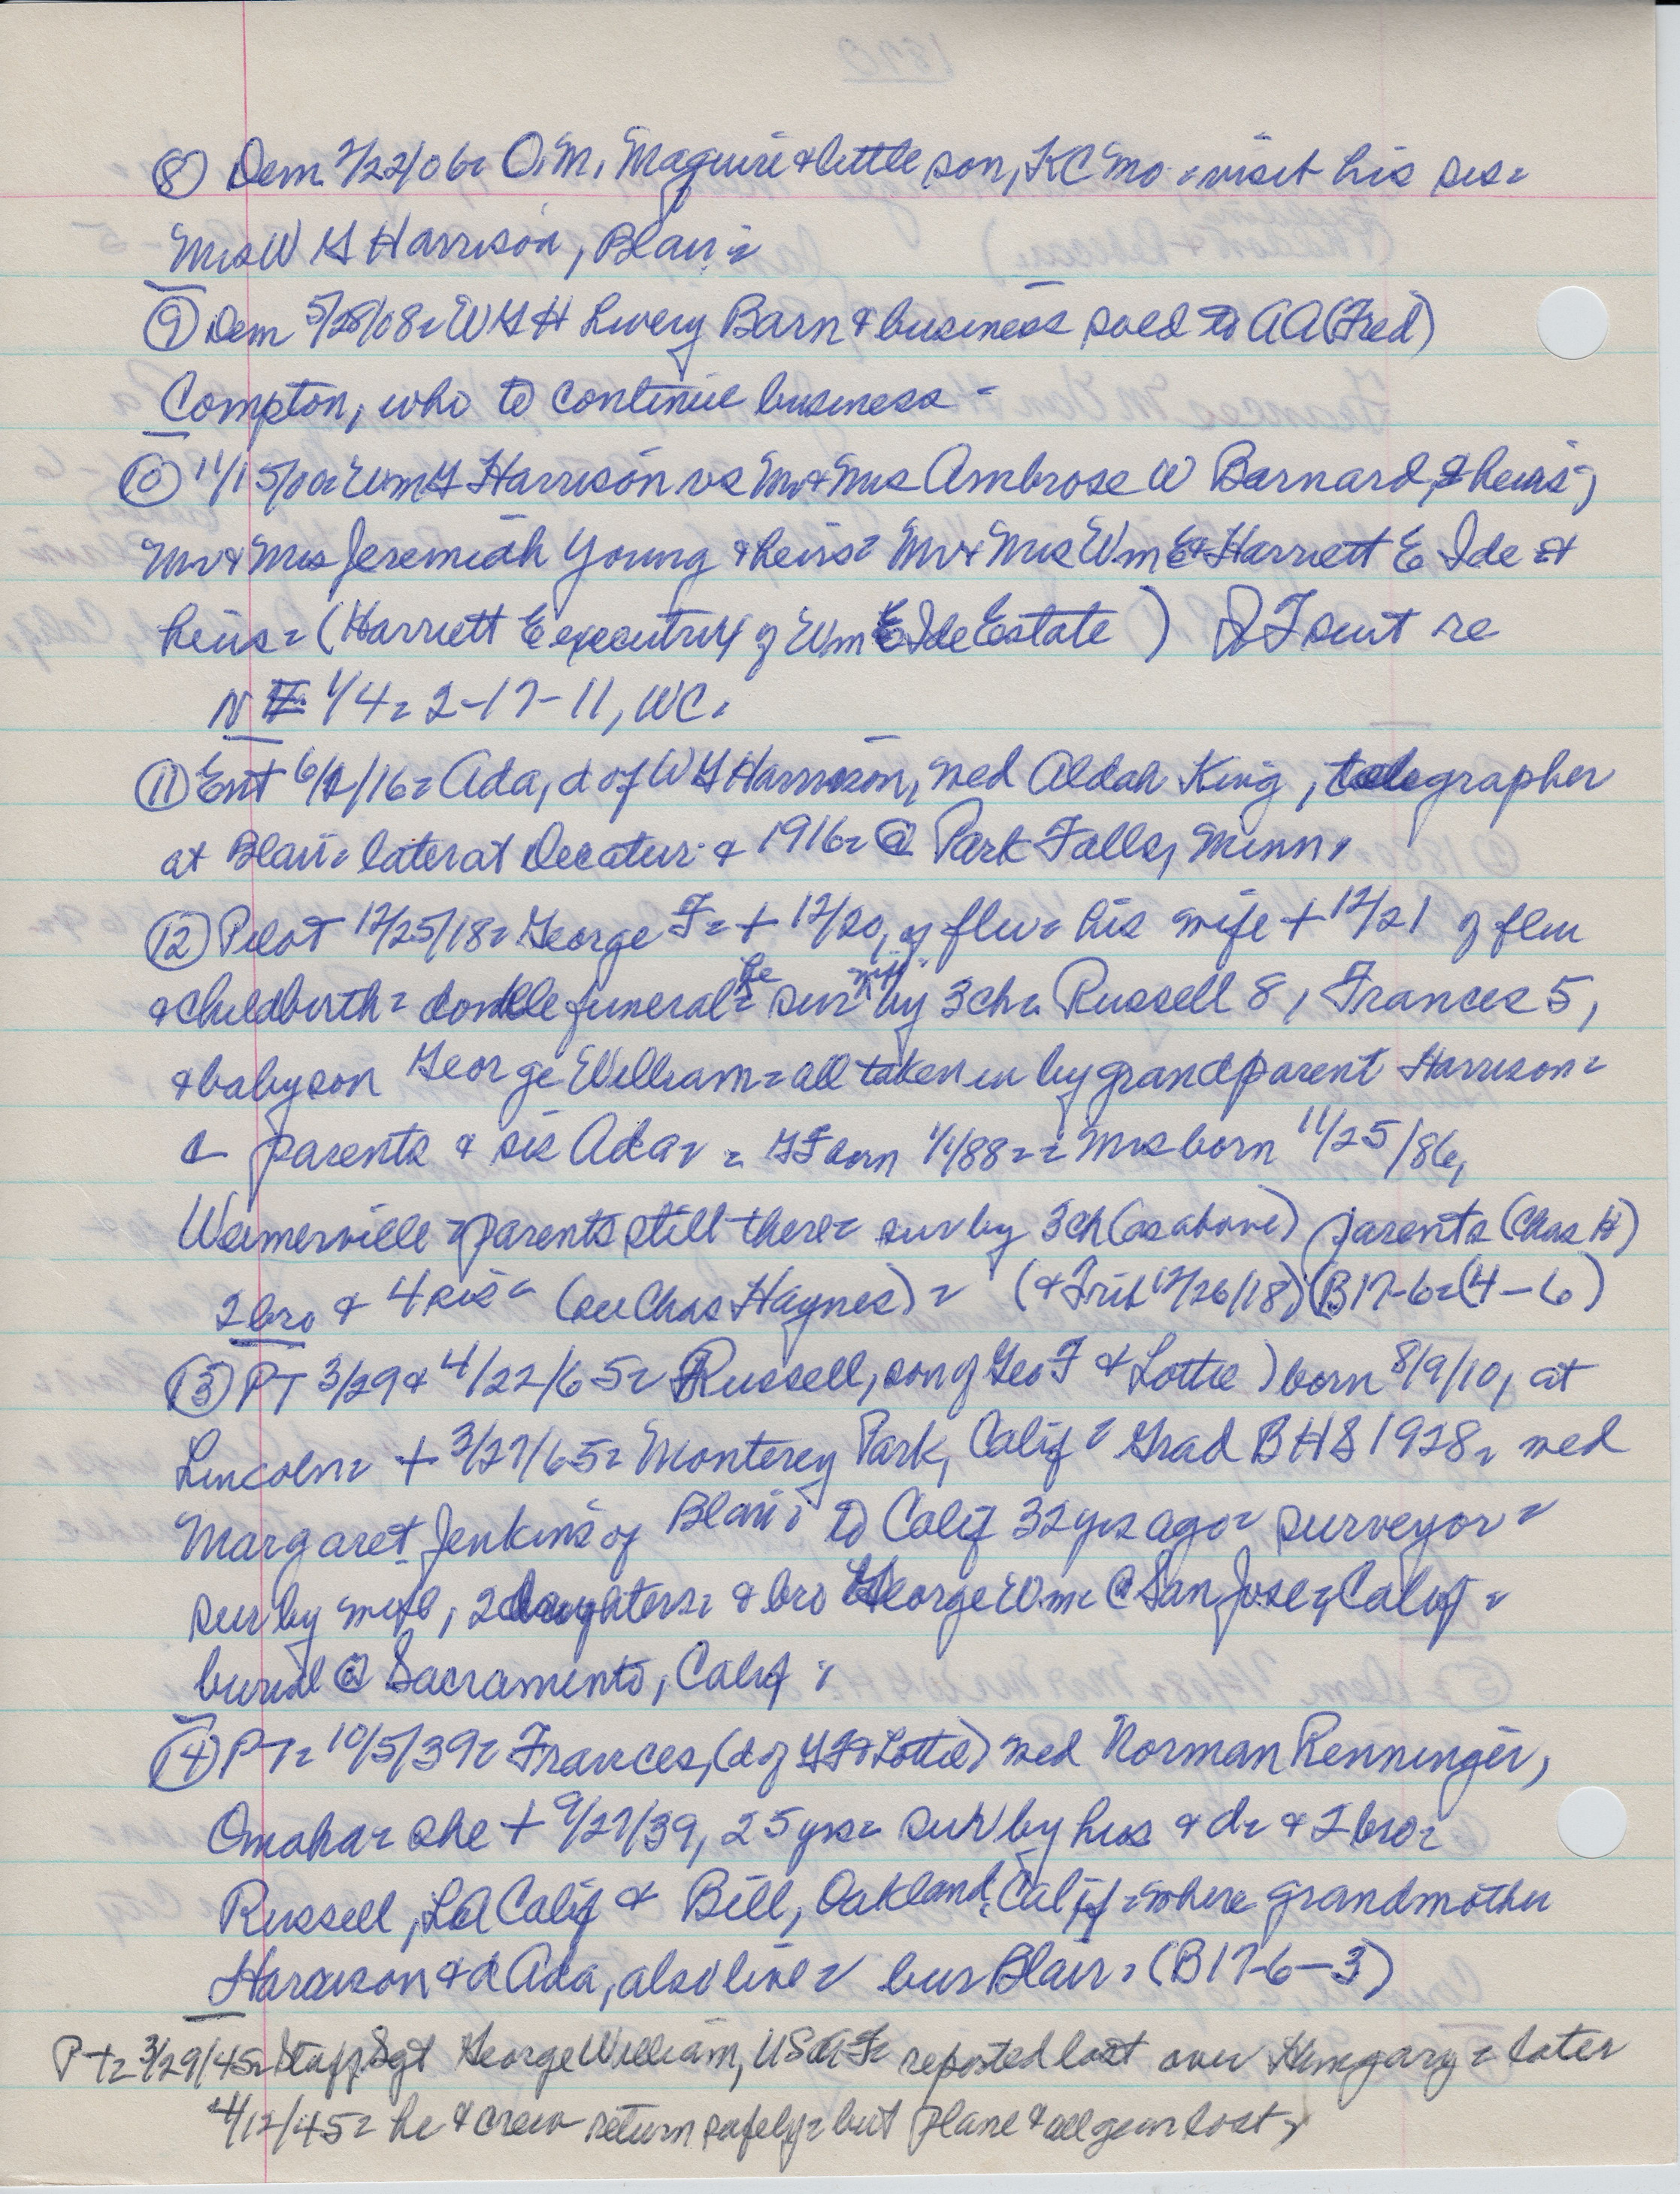 ⑧ Dem 2/22/06 = O.M. Maguire & little son, KC Mo = visit his sis =
Mrs W G Harrison, Blair =
⑨ Dem 5/28/08 = W G H Livery Barn & business sold to AA (Fred)
Compton, who to continue business -
⑩ 11/15/00 = Wm G Harrison vs Mr & Mrs Ambrose W Barnard, & heirs;
Mr & Mrs Jeremiah Young & heirs = Mr & Mrs Wm E & Harriett E Ide &
heirs = (Harriett E executrix of Wm E Ide Estate) QT suit re
N E 1/4 = 2-17-11, WC.
⑪ Ent 6/2/16 = Ada, d of W G Harrison, wed Aldah King, telegrapher
at Blair = later at Decatur & 1916 = @ Park Falls, Minn,
⑫ Pilot 12/25/18 = George F = + 12/20, of flu = his wife + 12/21 of flu
& childbirth = double funeral = he sur by 3 ch = Russell 8, Frances 5,
& baby son George William = all taken in by grandparent Harrison =
parents & sis Ada = = GF born 1/1/88 = = Mrs born 11/25/86,
Weimerville = parents still there = sur by 3 ch (as above) parents (Chas H)
2 bro & 4 sis = (see Chas Haynes) = (& Trib 12/26/18) (B17-6=(4-6)
⑬ PT 3/29 & 4/22/65 = Russell, son of Geo F & Lottie) born 8/9/10, at
Lincoln = + 3/27/65 = Monterey Park, Calif = Grad BHS 1928, wed
Margaret Jenkins of Blair = to Calif 32 yrs ago = surveyor =
sur by wife, 2 daughters = & bro George Wm @ San Jose, Calif =
burial @ Sacramento, Calif =
⑭ PT = 10/5/39 = Frances, (d of GF & Lottie) wed Norman Renninger,
Omaha = she + 9/27/39, 25 yrs = sur by hus & d = & 2 bro =
Russell, LA Calif & Bill, Oakland, Calif = where grandmother
Harrison & d Ada, also live = bur Blair = (B17-6-3)
PT = 3/29/45 = Staff Sgt George William, USAF = reported lost over Hungary = later
4/12/45 = he & crew return safely = but plane & all gear lost,